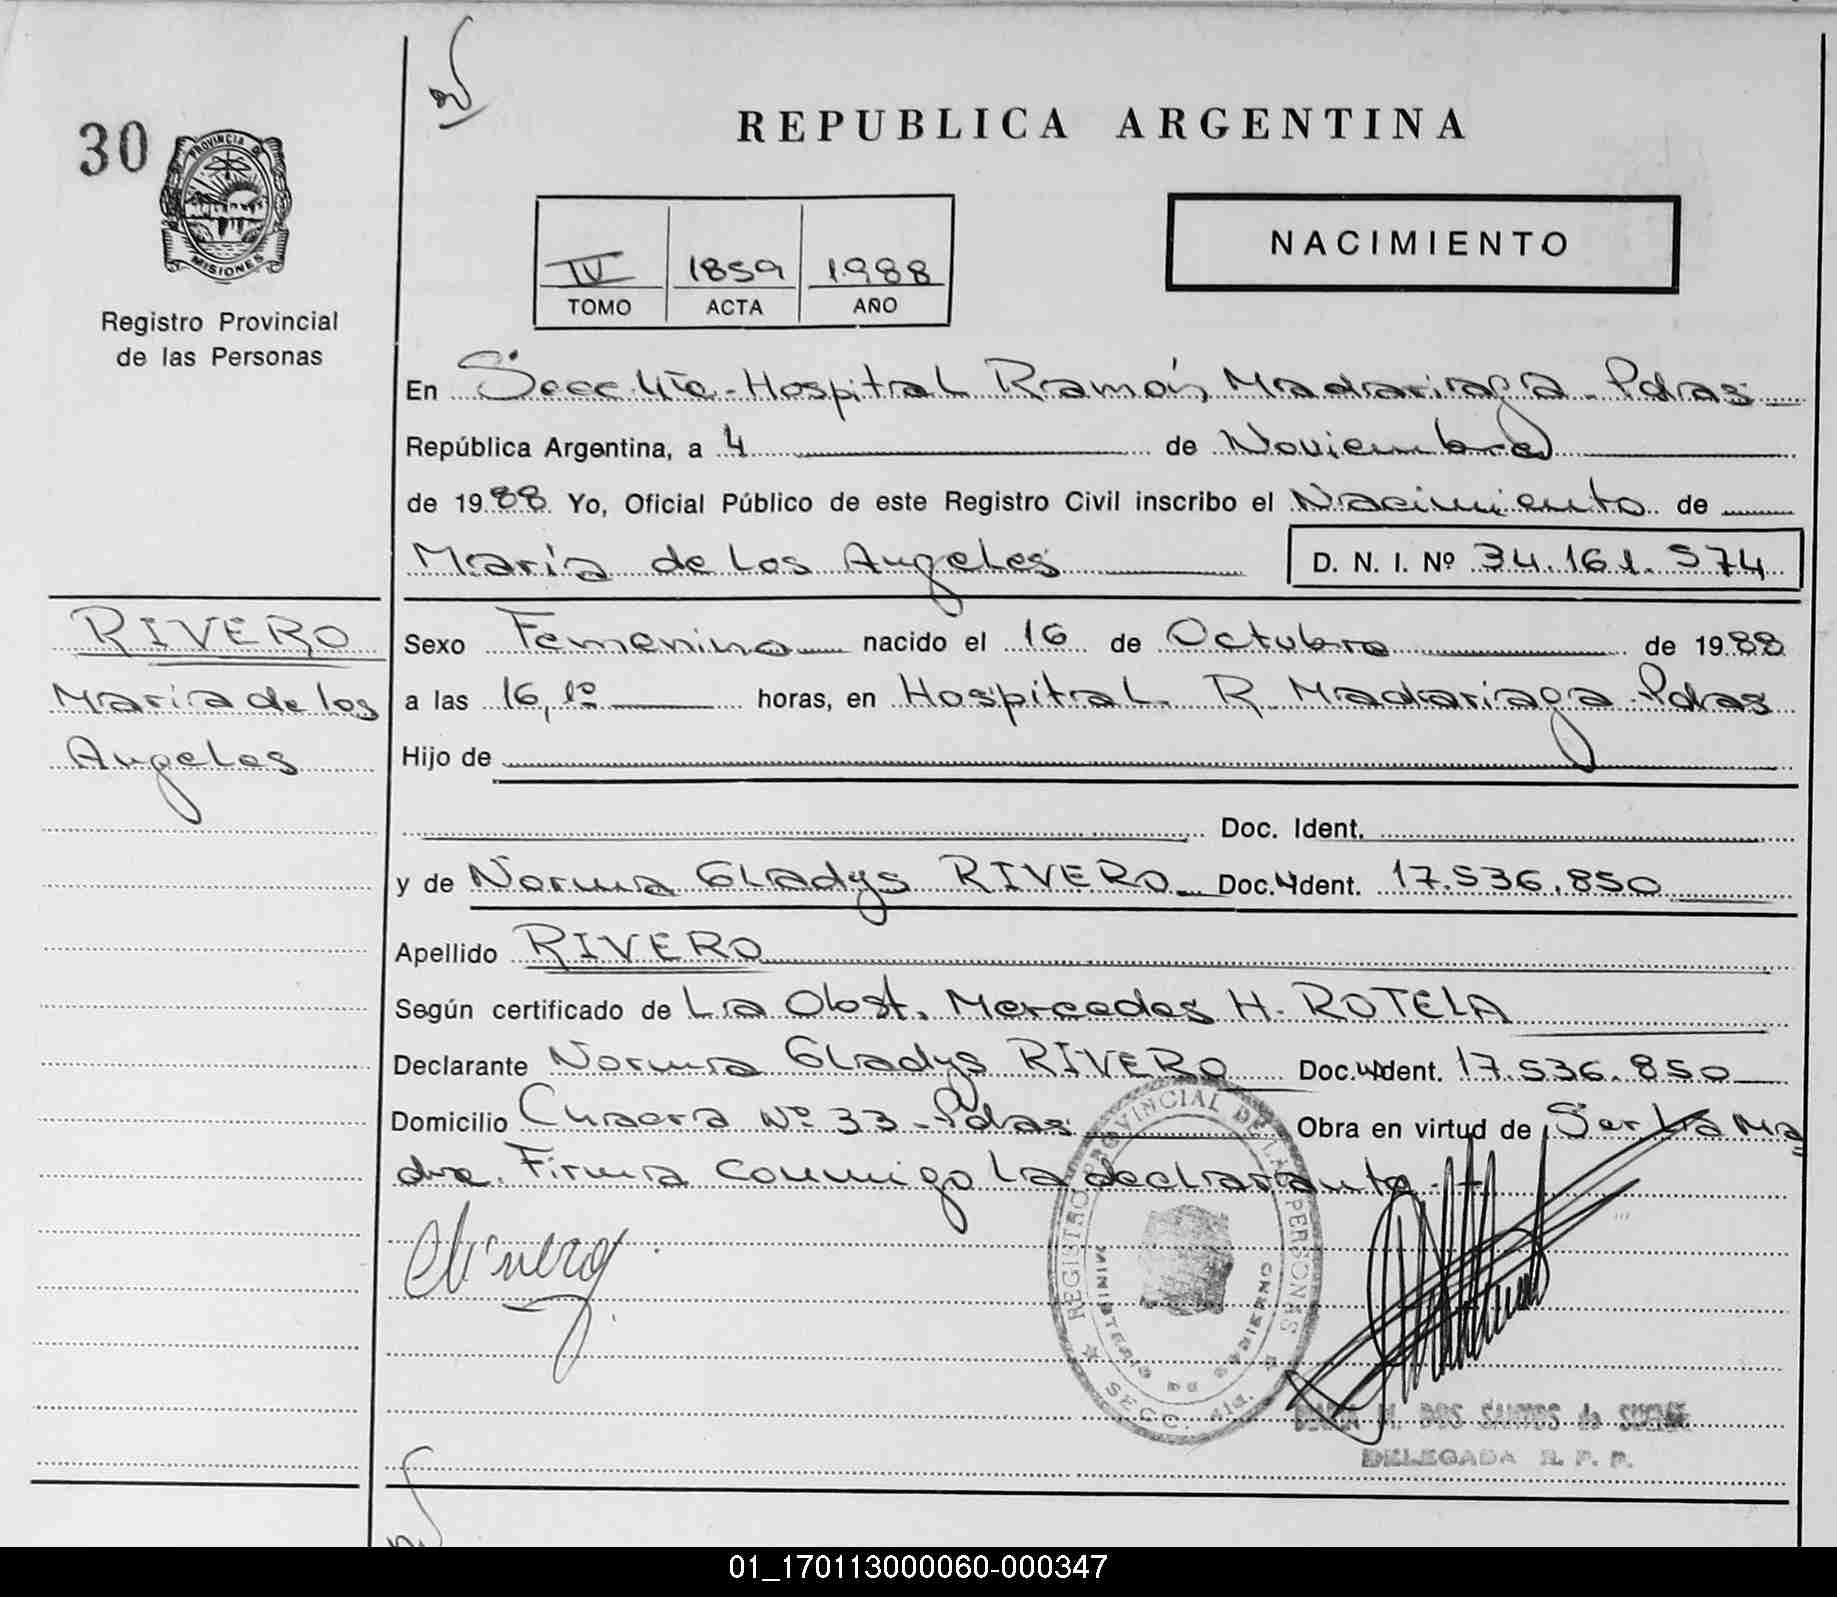 REPUBLICA ARGENTINA
30
PROVINCIA DE
MISIONES
Registro Provincial
de las Personas
NACIMIENTO
IV 1859 1988
TOMO ACTA AÑO
En Secc. 4ta - Hospital Ramón Madariaga - Pdas
República Argentina, a 4 de Noviembre
de 1988 Yo, Oficial Público de este Registro Civil inscribo el Nacimiento de
María de los Angeles D. N. I. Nº 34.161.574
RIVERO
María de los
Angeles
Sexo Femenino nacido el 16 de Octubre de 1988
a las 16,10 horas, en Hospital R. Madariaga - Pdas
Hijo de
Doc. Ident.
y de Norma Gladys RIVERO Doc. Ident. 17.536.850
Apellido RIVERO
Según certificado de La Obst. Mercedes H. ROTELA
Declarante Norma Gladys RIVERO Doc. Ident. 17.536.850
Domicilio Nº 33 - Pdas Obra en virtud de Ser la Ma
dre. Firma conmigo la declarante.-
REGISTRO PROVINCIAL DE LAS PERSONAS
MINISTERIO DE GOBIERNO
SECC. 4ta.
M. DOS SANTOS de
DELEGADA R. P. P.
01_170113000060-000347